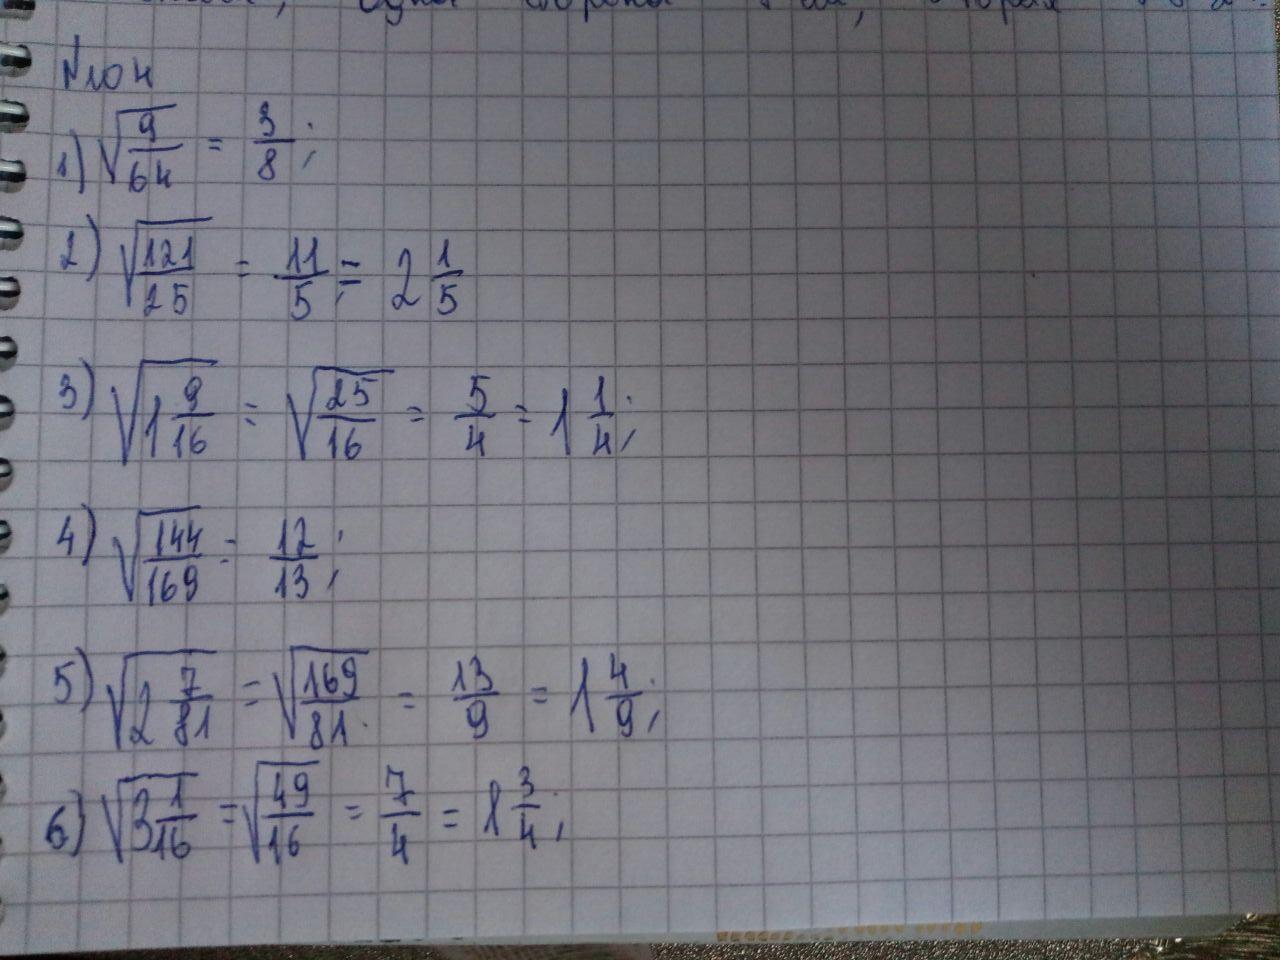 одна сторона
№104
1) √(9/64) = 3/8;
2) √(121/25) = 11/5 = 2 1/5
3) √(1 9/16) = √(25/16) = 5/4 = 1 1/4;
4) √(144/169) = 12/13;
5) √(2 7/81) = √(169/81) = 13/9 = 1 4/9;
6) √(3 1/16) = √(49/16) = 7/4 = 1 3/4;